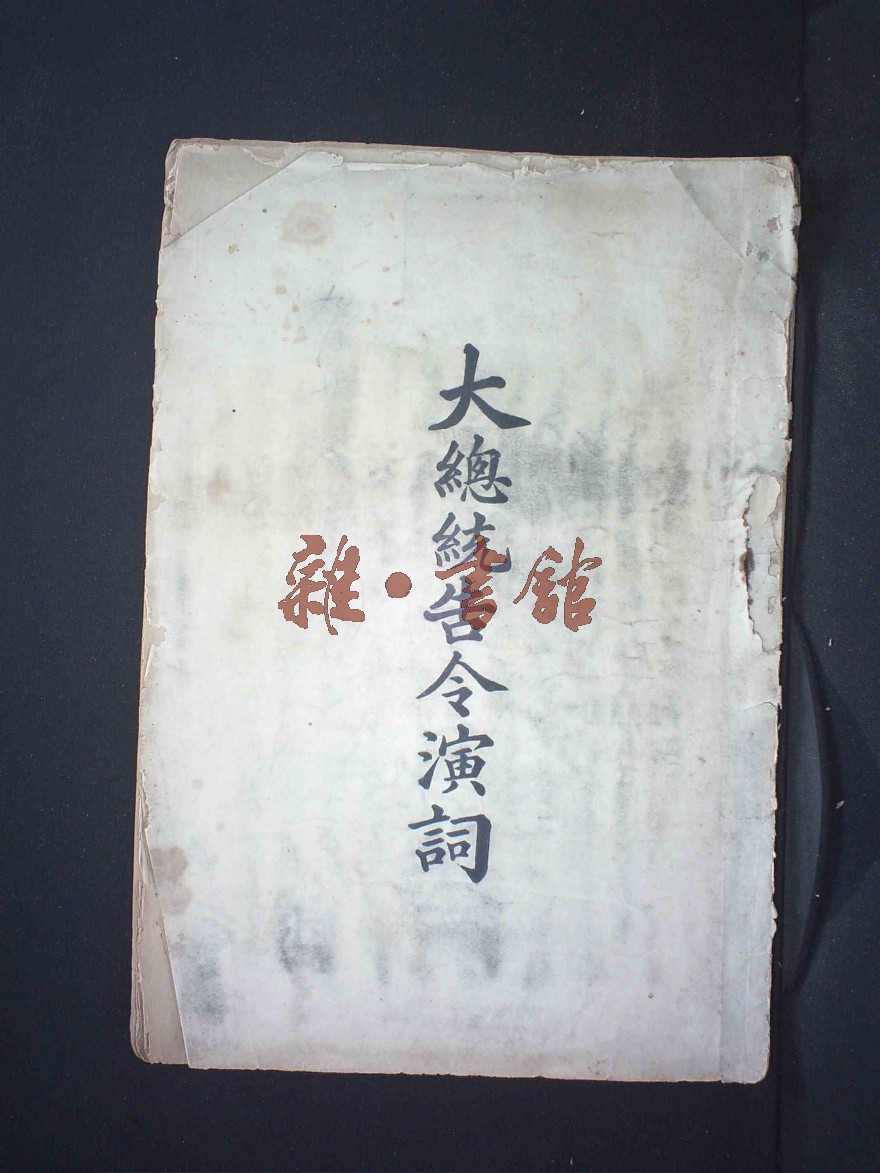 大總統告令演詞
雜·書館